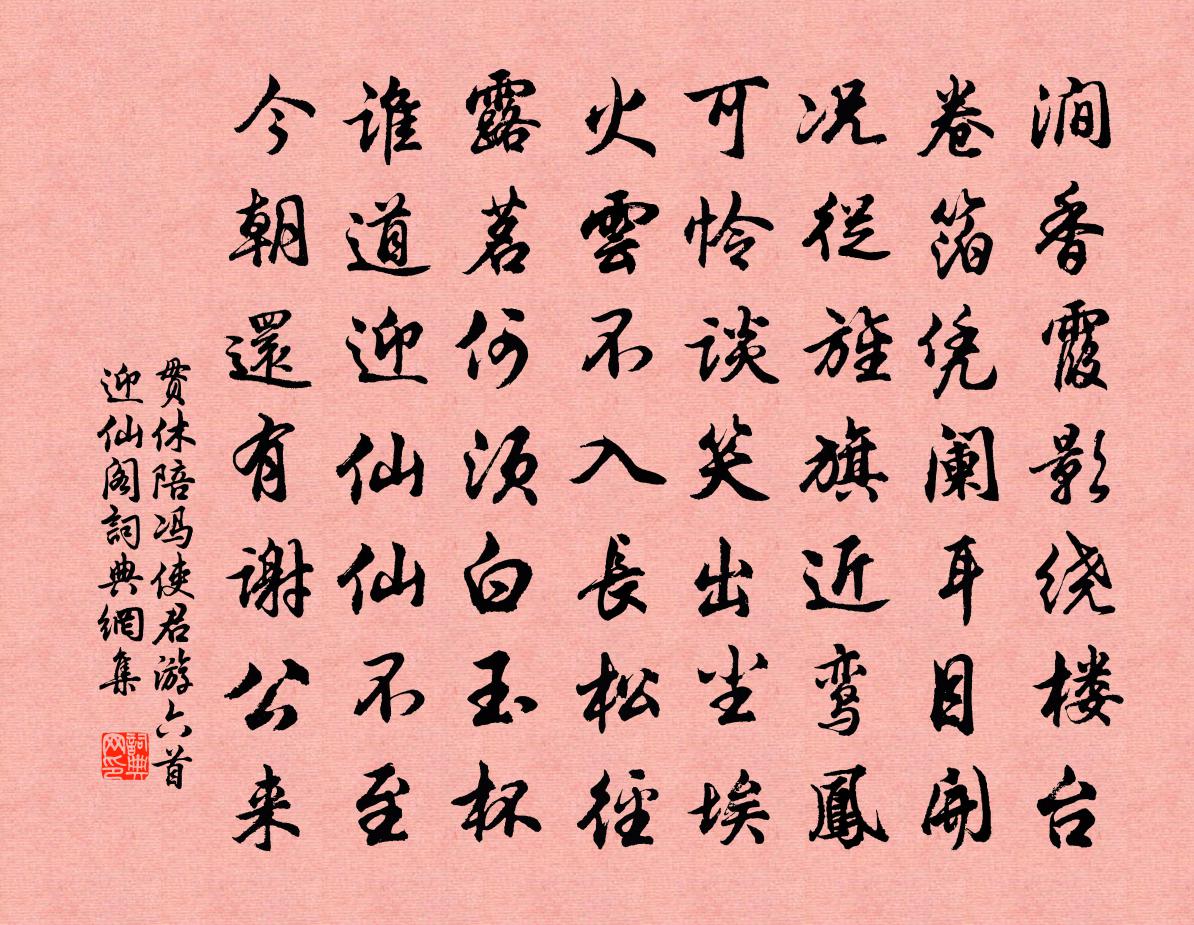 涧香霞影绕楼台
卷箔凭阑耳目开
况从旌旗近鸾鳳
可怜谈笑出尘埃
火雲不入長松徑
露茗何须白玉杯
谁道迎仙仙不至
今朝還有谢公来
贯休陪冯使君游六首
迎仙阁詞典網集
詞典网印